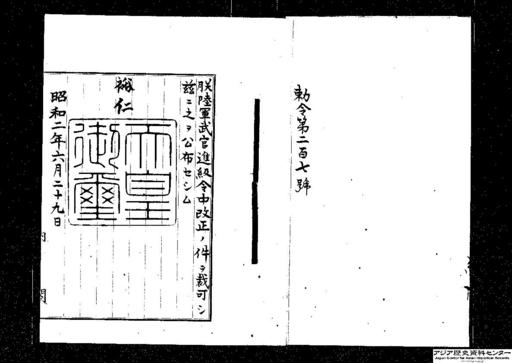 勅令第二百七號
朕陸軍武官進級令中改正ノ件ヲ裁可シ
茲ニ之ヲ公布セシム
裕仁
天皇
御璽
昭和二年六月二十九日
内閣
アジア歴史資料センター
Japan Center for Asian Historical Records